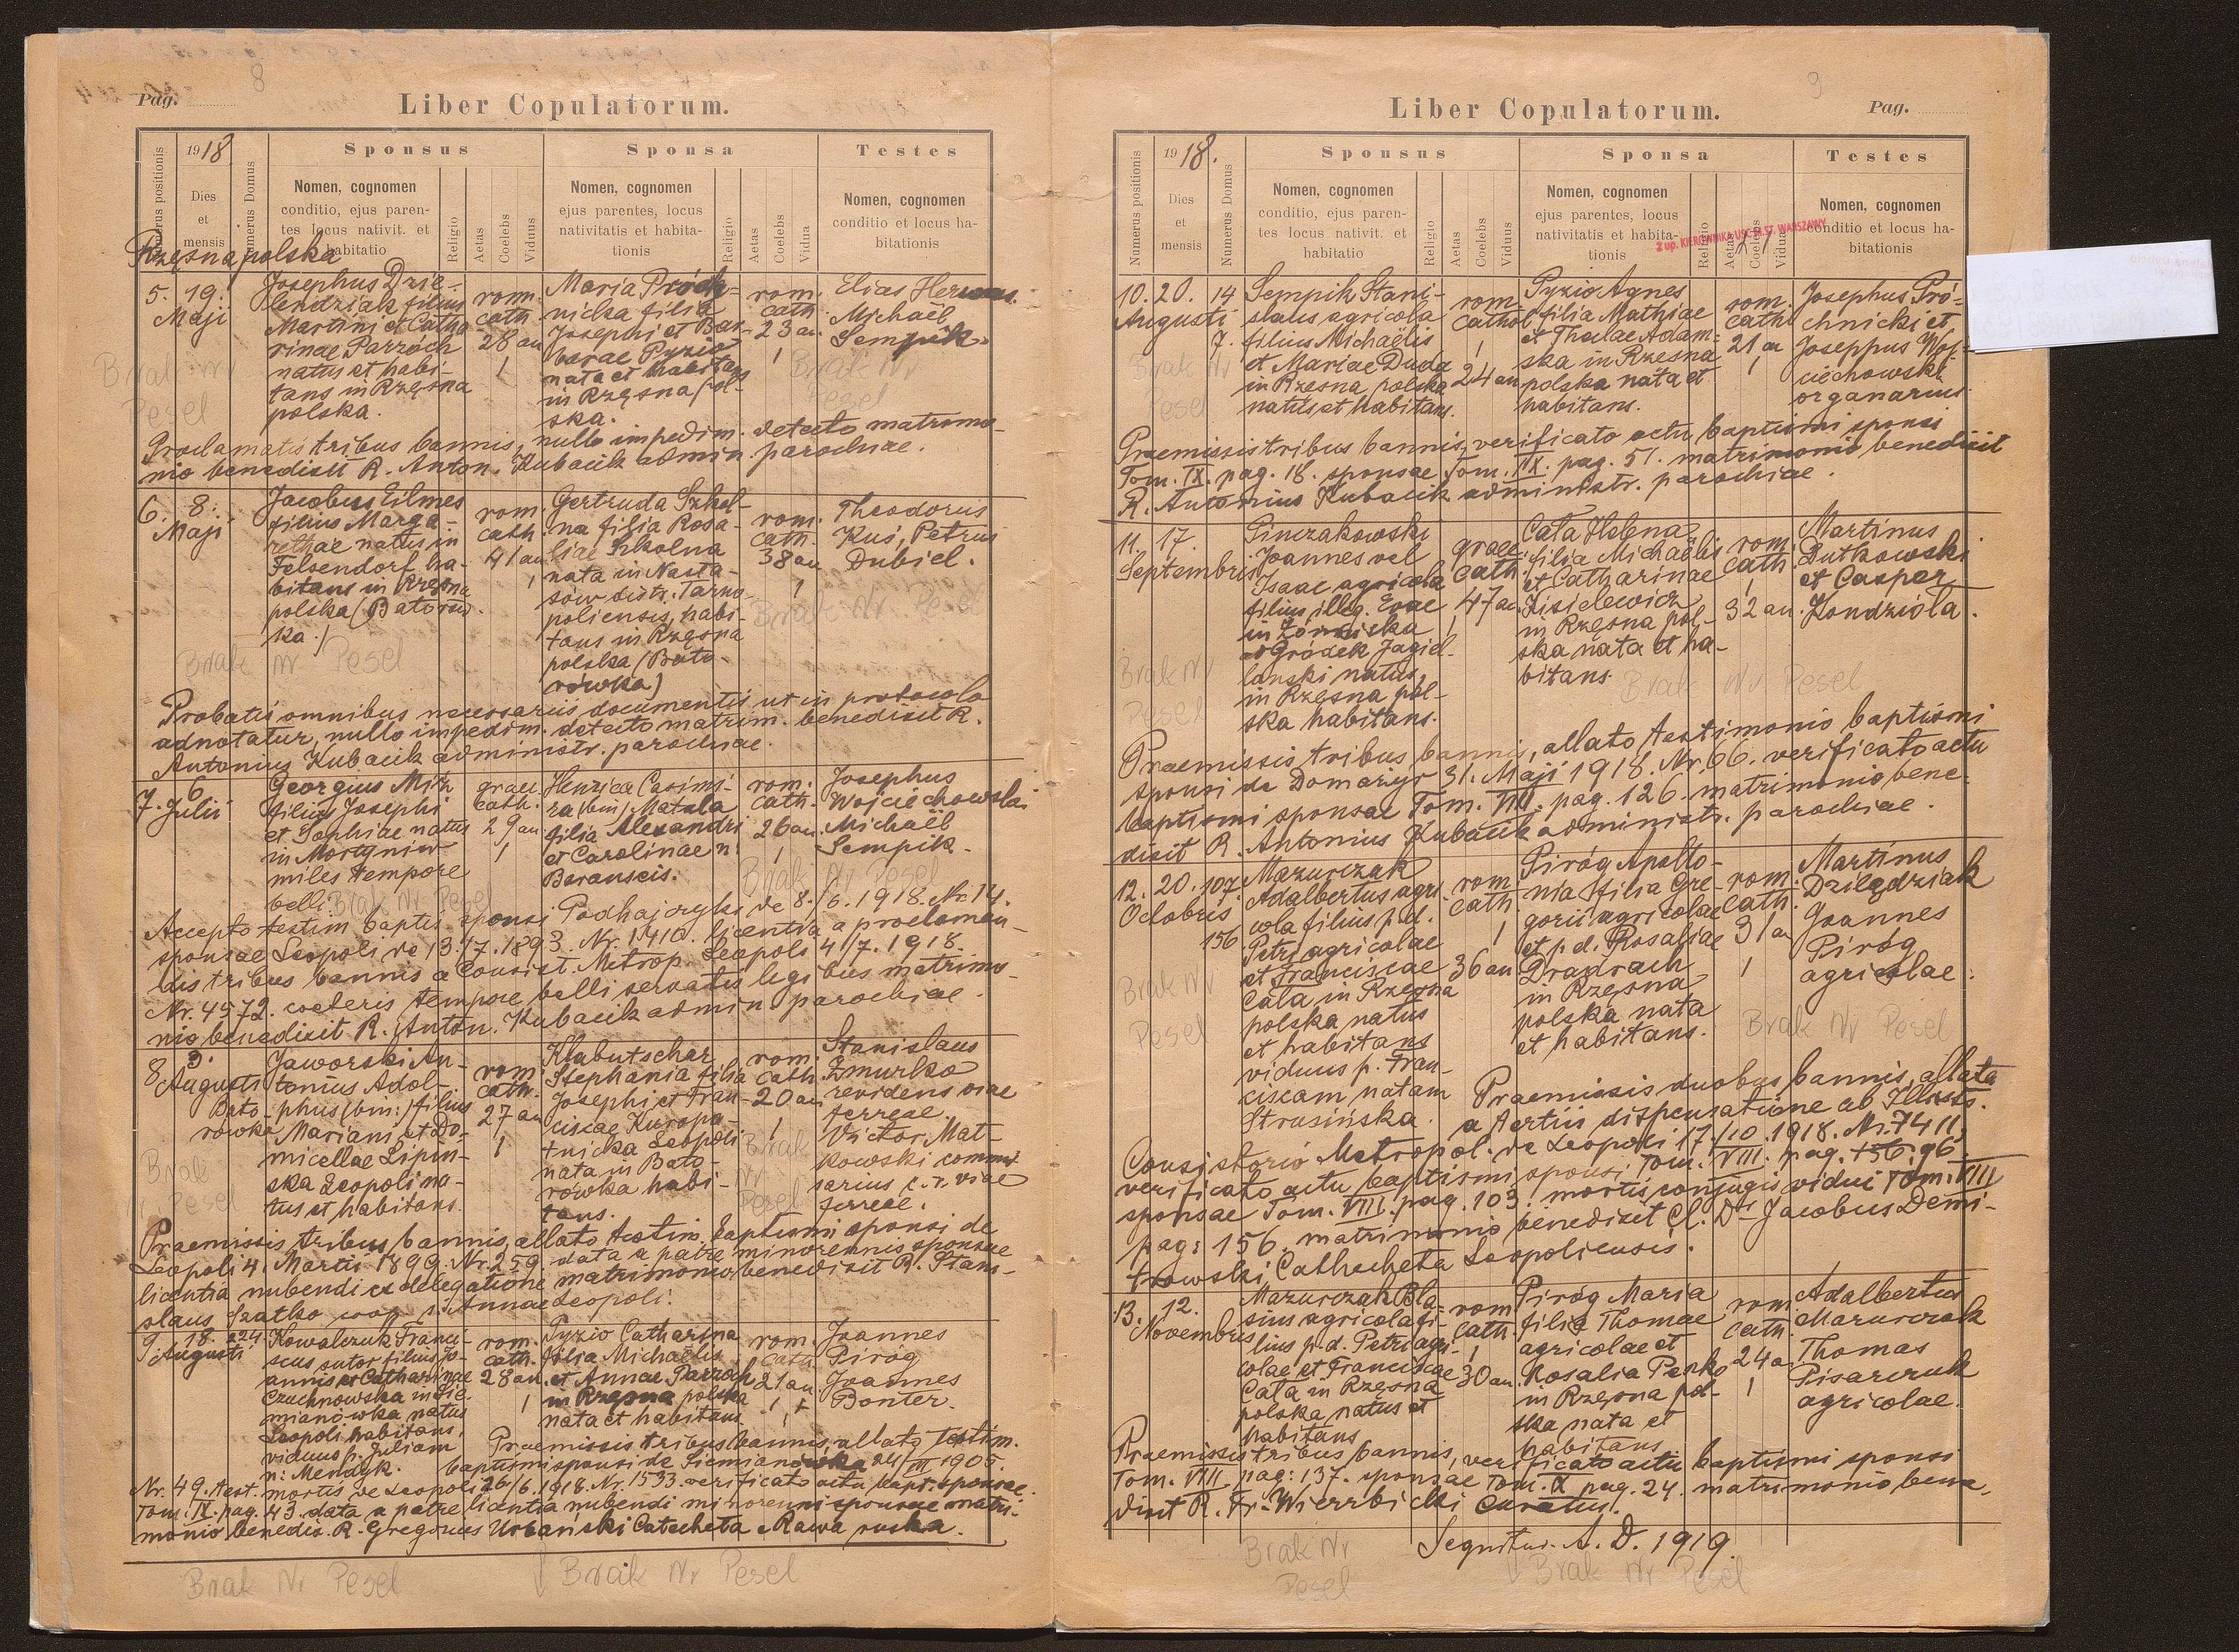 8
Pag.
Liber Copulatorum.
Numerus positionis
1918
Dies
et
mensis
Numerus Domus
Sponsus
Nomen, cognomen
conditio, ejus paren-
tes locus nativit. et
habitatio
Religio
Aetas
Coelebs
Viduus
Sponsa
Nomen, cognomen
ejus parentes, locus
nativitatis et habita-
tionis
Religio
Aetas
Coelebs
Vidua
Testes
Nomen, cognomen
conditio et locus ha-
bitationis
Rzęsna polska
5. 19.
Maji
Josephus Dzie-
lendziak filius
Martini et Catha-
rinae Parzoch
natus et habi-
tans in Rzęsna
polska.
rom.
cath
28 an
1
Maria Próch-
nicka filia
Josephi et Bar-
barae Pyzio
nata et habitans
in Rzęsna pol-
ska.
rom.
cath
23 an
1
Elias
Michael
Sempik.
Brak Nr
Pesel
Brak Nr
Pesel
Proclamatis tribus bannis, nullo impedim. detecto matrimo-
nio benedixit R. Anton. Kubacik admin. parochiae.
6. 8.
Maji
Jacobus Eilmes
filius Marga-
rethae natus in
Felsendorf ha-
bitans in Rzęsna
polska (Batorów-
ka.)
rom.
cath.
41 an
1
Gertruda Szkol-
na filia Rosa-
liae Szkolna
nata in Nasta-
sów distr. Tarno-
poliensis, habi-
tans in Rzęsna
polska (Bato-
rówka)
rom.
cath.
38 an
1
Theodorus
Kuś, Petrus
Dubiel.
Brak Nr Pesel
Brak Nr Pesel
Probatis omnibus necessariis documentis ut in protocolo
adnotatur, nullo impedim. detecto matrim. benedixit R.
Antonius Kubacik administr. parochiae.
7. 6
Julii
Georgius Mith
filius Josephi
et Sophiae natus
in
miles tempore
belli
graec.
cath.
29 an
1
Henrica Casimi-
ra (bin) Matala
filia Alexandri
et Carolinae n:
rom.
cath.
26 an.
1
Josephus
Wojciechowski
Michaël
Sempik.
Brak Nr Pesel
Brak Nr Pesel
Accepto testim baptis. sponsi Podhajczyki de 8./6. 1918. Nr. 14.
sponsae Leopoli de 13./7. 1893. Nr. 1410. licentia a proclaman-
dis tribus bannis a Consist. Metrop. Leopoli 4/7. 1918.
Nr. 4972. coeteris tempore belli servatis legibus matrimo-
nio benedixit R. Anton. Kubacik admin parochiae.
8 3.
Augusti
Bato-
rówka
Jaworski An-
tonius Adol-
phus (bin:) filius
Mariani et Do-
micellae Lipiń-
ska Leopoli na-
tus et habitans.
rom.
cath.
27 an
1
Klabutschar
Stephania filia
Josephi et Fran-
ciscae Kuropa-
tnicka Leopoli
nata in Bato
rówka habi-
tans.
rom.
cath.
20 an
1
Stanislaus
Żmurko
revidens viae
ferreae.
Victor Mat-
kowski commi
sarius c. r. viae
ferreae.
Brak
Pesel
Brak
Nr
Pesel
Praemissis tribus bannis, allato testim. baptismi sponsi de
Leopoli 4 Martii 1899. Nr. 259. data a patre minorennis sponsae
licentia nubendi ex delegatione matrimonio benedixit R. Stani-
slaus Szatko coop. s. Annae Leopoli.
9 18.
Augusti
224
Kowalczuk Franci-
scus sutor filius Jo-
annis et Catharinae
Czuchnowska in Sie
mianówka natus
Leopoli habitans,
viduus p. Juliam
n: Mendyk.
rom.
cath.
28 an.
1
Pyzio Catharina
filia Michaëlis
et Annae Parzoch
in Rzęsna polska
nata et habitans.
rom.
cath
21 an
1
Joannes
Piróg
Joannes
Bonter.
Praemissis tribus bannis, allato testim.
baptismi sponsi de Siemianówka 24/III 1905.
Nr. 49. test. mortis de Leopoli 26/6. 1918. Nr. 1533. verificato actu bapt. sponsae.
Tom. IX. pag. 43. data a patre licentia nubendi minorenni sponsae matri-
monio benedix. R. Gregorius Urbański Catecheta e Rawa ruska.
Brak Nr Pesel
Brak Nr Pesel
9
Liber Copulatorum.
Pag.
Numerus positionis
1918.
Dies
et
mensis
Numerus Domus
Sponsus
Nomen, cognomen
conditio, ejus paren-
tes locus nativit. et
habitatio
Religio
Aetas
Coelebs
Viduus
Sponsa
Nomen, cognomen
ejus parentes, locus
nativitatis et habita-
tionis
Religio
Aetas
Coelebs
Vidua
Testes
Nomen, cognomen
conditio et locus ha-
bitationis
Z up. KIEROWNIKA USC M.ST. WARSZAWY
10. 20.
Augusti
14
7.
Sempik Stani-
slaus agricola
filius Michaëlis
et Mariae Duda
in Rzęsna polska
natus et habitans.
rom
cathol
1
24 an
Pyzio Agnes
filia Mathiae
et Theclae Adam-
ska in Rzęsna
polska nata et
habitans.
rom.
cath
21 an
1
Josephus Pró-
chnicki et
Joseppus Woj-
ciechowski
organarius.
Brak Nr
Pesel
Praemissis tribus bannis, verificato actu baptismi sponsi
Tom. IX. pag. 18. sponsae Tom. IX. pag. 51. matrimonio benedixit
R. Antonius Kubacik administr. parochiae.
11. 17.
Septembris
Joannes vel
Isaac agricola
filius illeg. Evae
in
ad Gródek Jagiel-
lonski natus,
in Rzęsna pol-
ska habitans.
graec.
cath.
1
47 an
Cała Helena
filia Michaëlis
et Catharinae
Kisielewicz
in Rzęsna pol-
ska nata et ha-
bitans.
rom.
cath
1
32 an.
Martinus
Dutkowski
et Casper
Kondziola.
Brak Nr
Pesel
Brak Nr Pesel
Praemissis tribus bannis, allato testimonio baptismi
sponsi de Domażyr 31. Maji 1918. Nr. 66. verificato actu
baptismi sponsae Tom. VIII. pag. 126. matrimonio bene-
dixit R. Antonius Kubacik administr. parochiae.
12. 20.
Octobris
107.
156
Mazurczak
Adalbertus agri
cola filius p. d.
Petri agricolae
et Franciscae
Cała in Rzęsna
polska natus
et habitans
viduus p. Fran-
ciscam natam
Strusińska.
rom
cath
1
36 an
Piróg Apollo-
nia filia Gre-
gorii agricolae
et p. d. Rosaliae
in Rzęsna
polska nata
et habitans.
rom.
cath.
31 an
1
Martinus
Dzilędziak
Joannes
Piróg
agricolae.
Brak Nr
Pesel
Brak Nr Pesel
Praemissis duobus bannis, allata
a tertii dispensatione ab Illustr.
Consistorio Metropol. de Leopoli 17./10. 1918. Nr. 7411,
verificato actu baptismi sponsi Tom. VIII. pag. 156. 96.
sponsae Tom. VIII. pag. 103. mortis conjugis vidui Tom. VIII
pag: 156. matrimonio benedixit Cl. D. Jacobus Demi-
trowski Cathecheta Leopoliensis.
13. 12.
Novembris
Mazurczak Bla-
sius agricola fi-
lius p. d. Petri agri-
colae et Franciscae
Cała in Rzęsna
polska natus et
habitans
rom
cath.
1
30 an.
Piróg Maria
filia Thomae
agricolae et
Rosalia Penko
in Rzęsna pol-
ska nata et
habitans
rom
cath.
24 a
1
Adalbertus
Mazurczak
Thomas
Pisarczuk
agricolae.
Praemissis tribus bannis, verificato actu baptismi sponsi
Tom. VIII pag: 137. sponsae Tom. IX pag. 24. matrimonio bene-
dixit R. Fr. Wierzbicki Curatus.
Sequitur. A. D. 1919.
Brak Nr
Pesel
Brak Nr Pesel